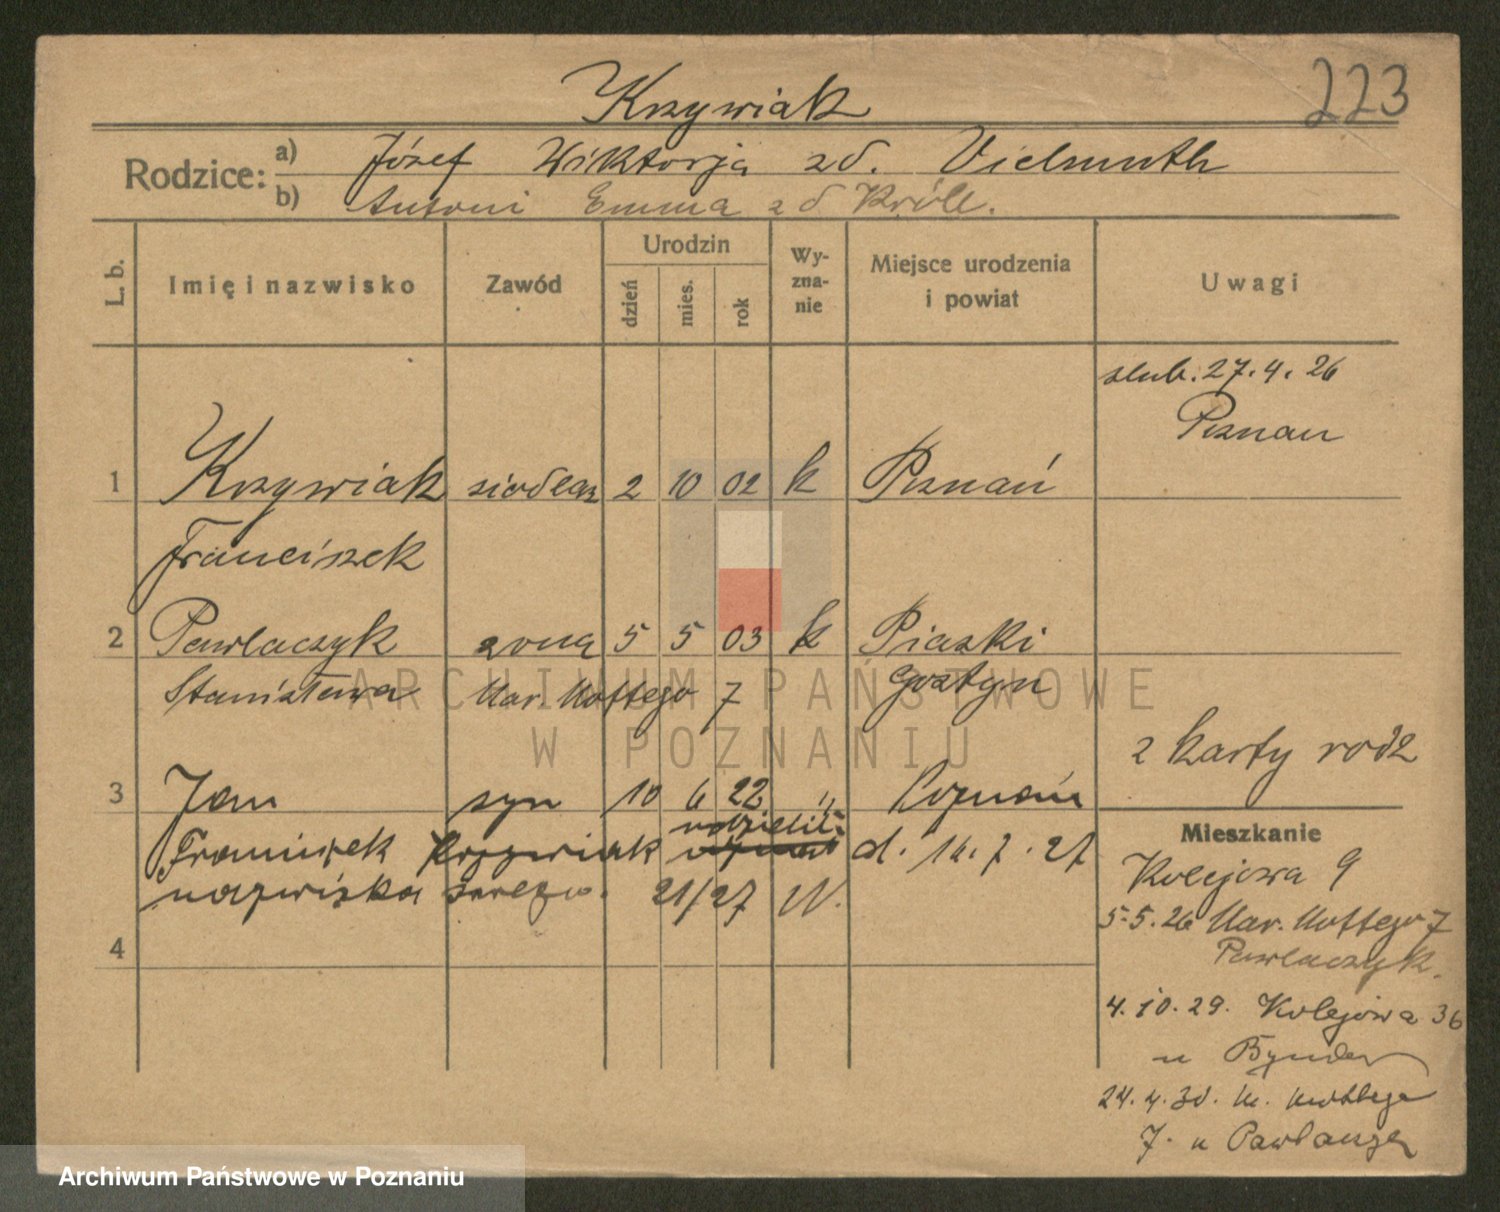 223
Krzywiak
Rodzice:
a) Józef Wiktorja zd. Vielmuth
b) Antoni Emma zd Król.
L. b.
Imię i nazwisko
Zawód
Urodzin
dzień
mies.
rok
Wy-
zna-
nie
Miejsce urodzenia
i powiat
Uwagi
slub. 27.4.26
Poznan
1 Krzywiak siodlarz 2 10 02 k Poznań
Franciszek
2 Pawlaczyk zona 5 5 03 k Piaski
Stanisława Mar. Mottego 7 Gostyn
z karty rodz
3 Jan syn 10 6 22 " Poznań
Franciszek Krzywiak udzielił d. 14.7.27
nazwiska swego. 21/27 W.
4
Mieszkanie
Kolejowa 9
5.5.26 Mar. Mottego 7
Pawlaczyk.
4.10.29. Kolejowa 36
u
24.4.30. M. Mottego
7. u
ARCHIWUM PAŃSTWOWE
W POZNANIU
Archiwum Państwowe w Poznaniu